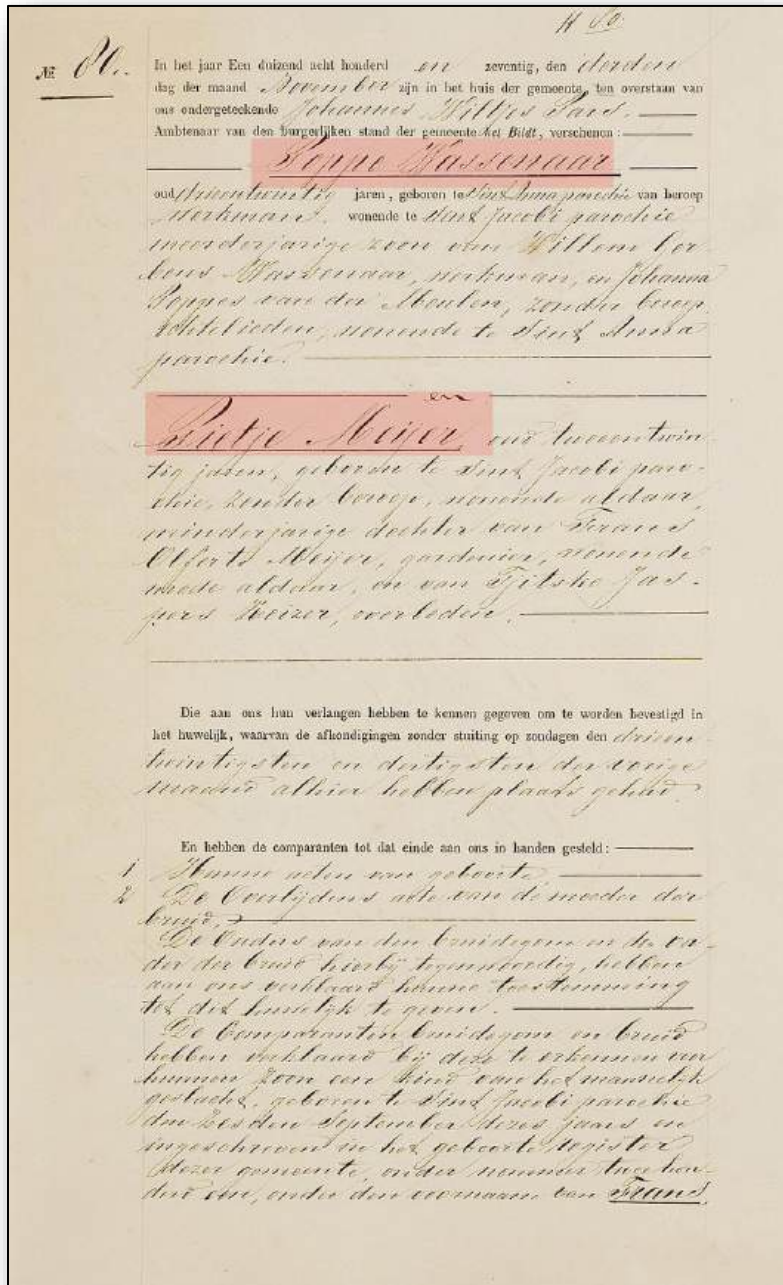 H 80.
№ 80.
In het jaar Een duizend acht honderd en zeventig, den derden
dag der maand November zijn in het huis der gemeente, ten overstaan van
ons ondergeteekende Johannes Wiltjes Sars.
Ambtenaar van den burgerlijken stand der gemeente het Bildt, verschenen:
Poppe Wassenaar
oud drieentwintig jaren, geboren te Sint Anna parochie van beroep
werkman, wonende te Sint Jacobi parochie
meerderjarige zoon van Willem Ger
bens Wassenaar, werkman, en Johanna
Poppes van der Meulen, zonder beroep,
echtelieden, wonende te Sint Anna
parochie.
en
Pietje Meijer, oud tweeentwin
tig jaren, geboren te Sint Jacobi paro-
chie, zonder beroep, wonende aldaar,
minderjarige dochter van Frans
Olferts Meijer, gardenier, wonende
mede aldaar, en van Tjitske Jas-
pers Keizer, overleden.
Die aan ons hun verlangen hebben te kennen gegeven om te worden bevestigd in
het huwelijk, waarvan de afkondigingen zonder stuiting op zondagen den drieen
twintigsten en dertigsten der vorige
maand alhier hebben plaats gehad.
En hebben de comparanten tot dat einde aan ons in handen gesteld:
1 Hunne acten van geboorte
2 De Overlijdens acte van de moeder der
bruid.
De Ouders van den bruidegom en de va-
der der bruid hierbij tegenwoordig, hebben
aan ons verklaard hunne toestemming
tot dit huwelijk te geven.
De Comparanten bruidegom en bruid
hebben verklaard bij deze te erkennen voor
hunnen zoon een kind van het mannelijk
geslacht, geboren te Sint Jacobi parochie
den zesden September dezes jaars en
ingeschreven in het geboorte register
dezer gemeente, onder nummer twee hon-
derd een, onder den voornaam van Frans,